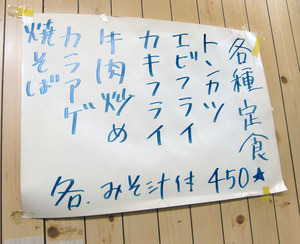 各種定食
トンカツ
エビフライ
カキフライ
牛肉炒め
カラアゲ
焼そば
各.みそ汁付450★